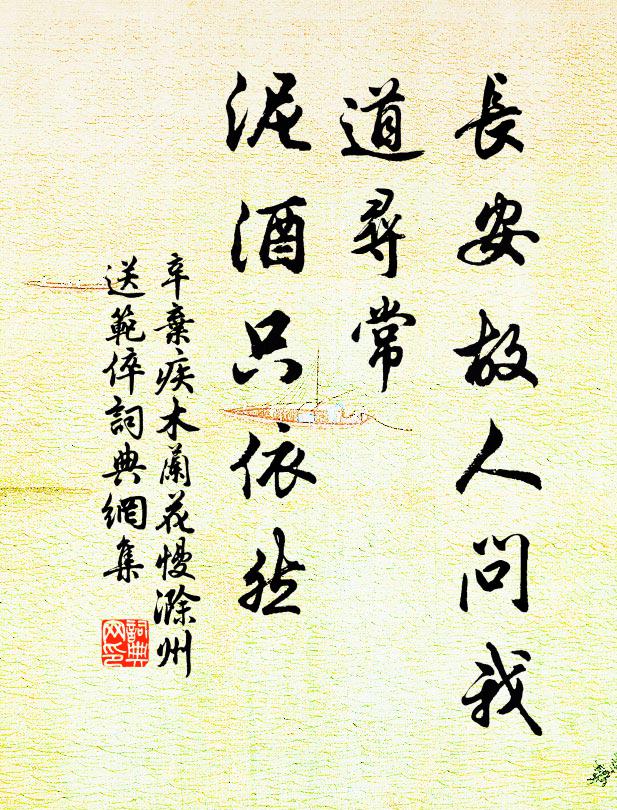 長安故人問我
道尋常
泥酒只依然
辛棄疾木蘭花慢滁州
送範倅詞典網集
詞典
网印